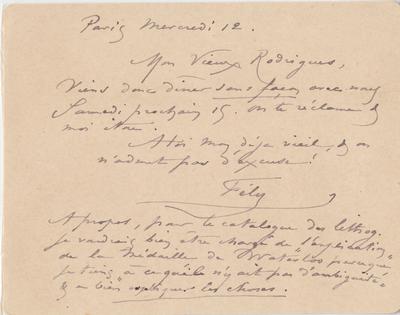 Paris Mercredi 12.
Mon Vieux Rodrigues,
Viens donc dîner sans façon avec nous
Samedi prochain 15. On te réclame &
moi
A toi mon déjà vieil, & on
n'admet pas d'excuse!
Fély
A propos, pour le catalogue des lithog.
je voudrais bien être chargé de "l'explication"
de la Médaille de Waterloo parceque
je tiens à ce qu'elle n'y ait pas d'ambiguité
& a bien expliquer les choses.